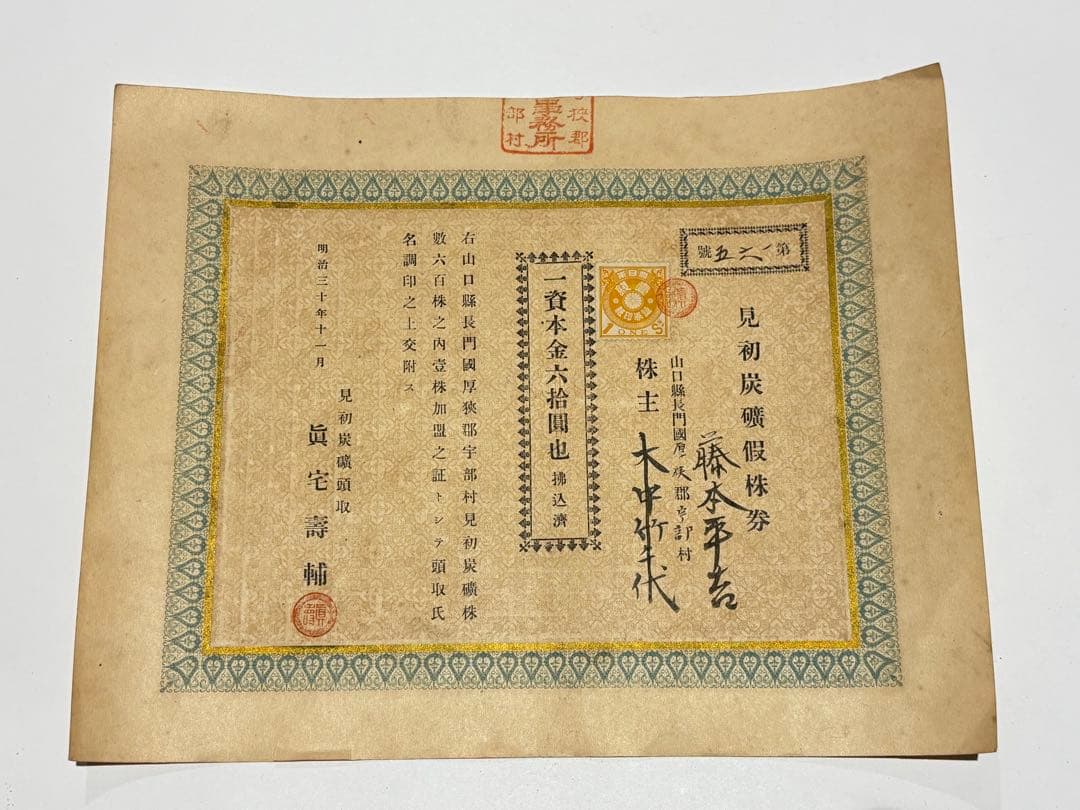 狹郡
事務所
部村
第五六一號
見初炭礦假株券
山口縣長門國厚狹郡宇部村
藤本平吉
株主
木中竹千代
1 ONE S
一資本金六拾圓也 拂込濟
右山口縣長門國厚狹郡宇部村見初炭礦株
數六百株之內壹株加盟之証トシテ頭取氏
名調印之上交附ス
明治三十年十一月
見初炭礦頭取
眞宅壽輔